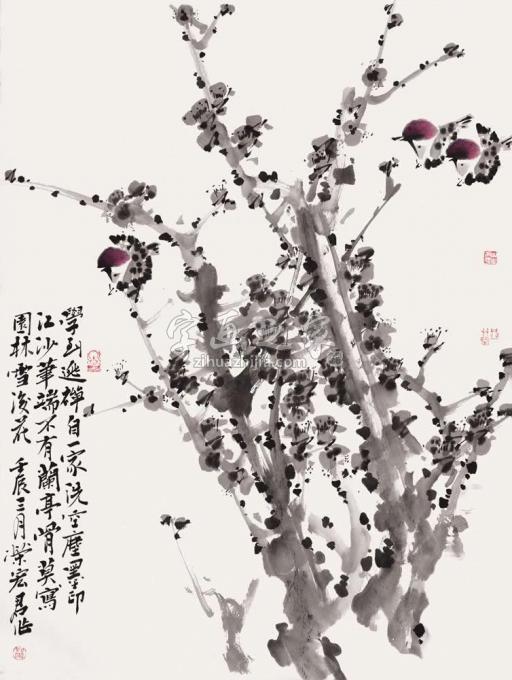 學到逃禪自一家洗空塵墨印
江沙筆端不有蘭亭骨莫寫
園林雪後花 壬辰三月榮宏君作
字画致享
zihuazhijia.com